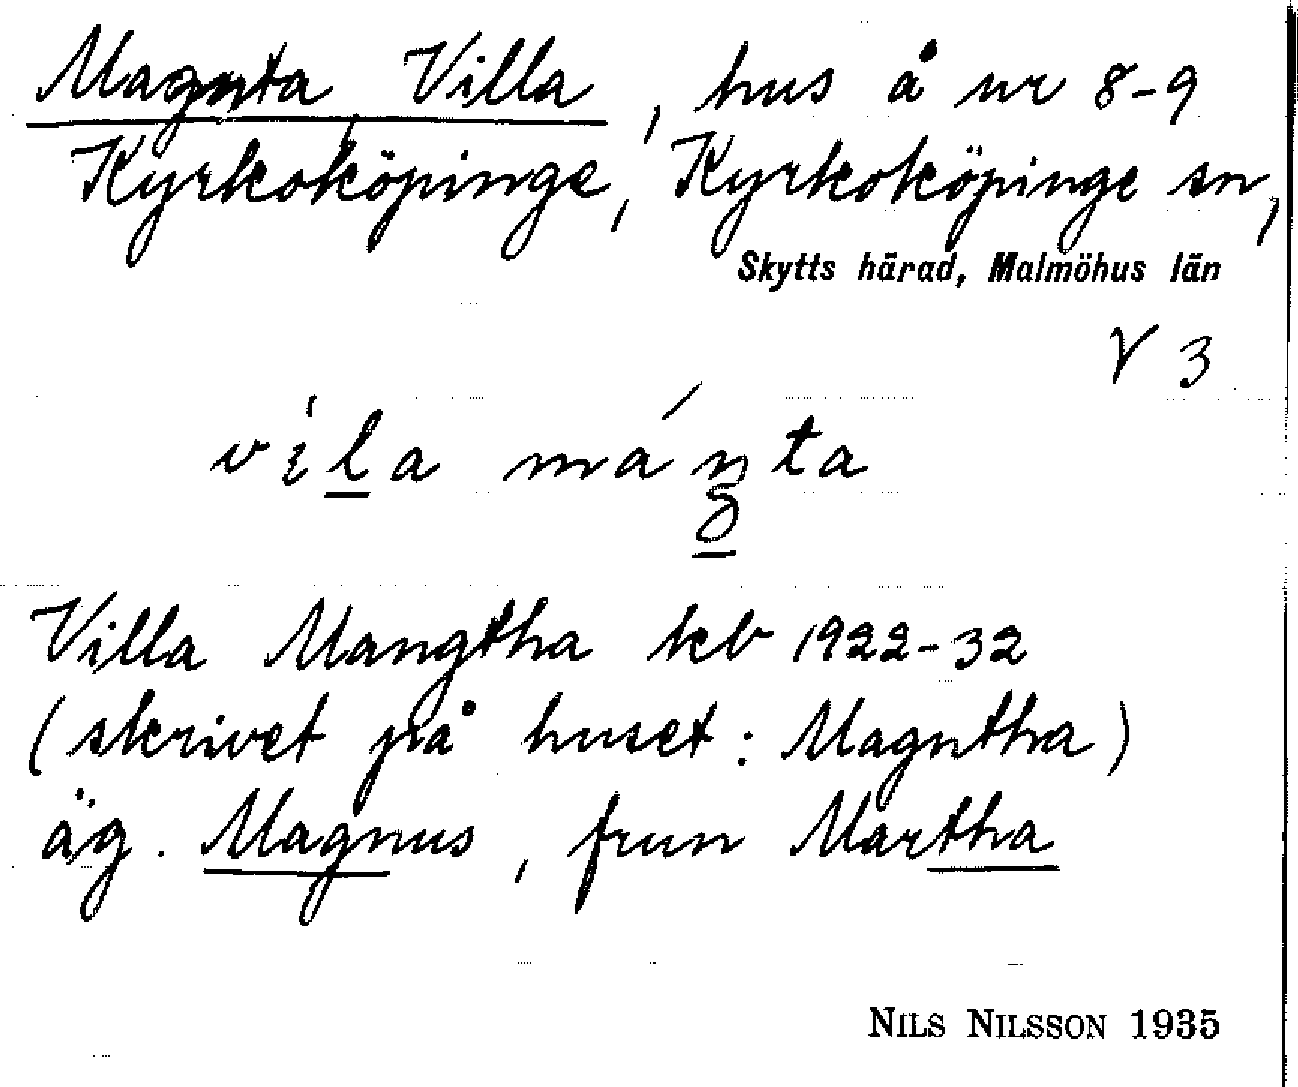 Magnta Villa, hus å nr 8-9
Kyrkoköpinge, Kyrkoköpinge sn,
Skytts härad, Malmöhus län
V 3
víla mánta
Villa Mangtha teb 1922-32
(skrivet på huset: Magntha)
äg. Magnus, frun Martha
NILS NILSSON 1935